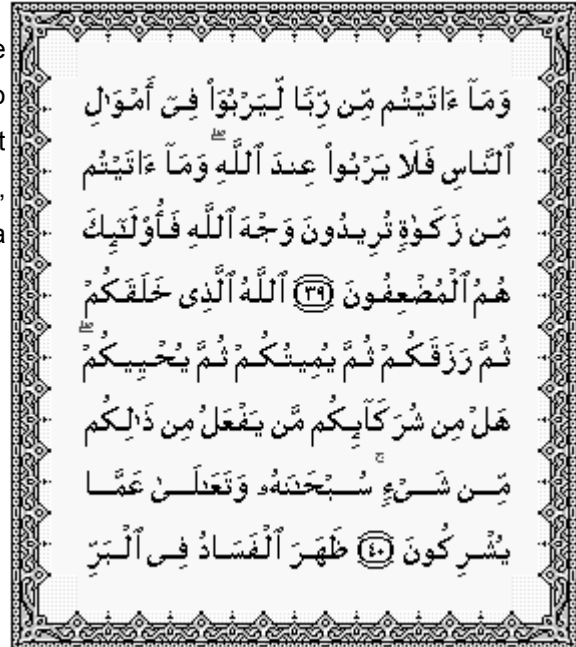 وَمَآ ءَاتَيْتُم مِّن رِّبًا لِّيَرْبُوَا۟ فِىٓ أَمْوَٰلِ
ٱلنَّاسِ فَلَا يَرْبُوا۟ عِندَ ٱللَّهِ ۖ وَمَآ ءَاتَيْتُم
مِّن زَكَوٰةٍ تُرِيدُونَ وَجْهَ ٱللَّهِ فَأُو۟لَـٰٓئِكَ
هُمُ ٱلْمُضْعِفُونَ ﴿٣٩﴾ ٱللَّهُ ٱلَّذِى خَلَقَكُمْ
ثُمَّ رَزَقَكُمْ ثُمَّ يُمِيتُكُمْ ثُمَّ يُحْيِيكُمْ ۖ
هَلْ مِن شُرَكَآئِكُم مَّن يَفْعَلُ مِن ذَٰلِكُم
مِّن شَىْءٍ ۚ سُبْحَـٰنَهُۥ وَتَعَـٰلَىٰ عَمَّا
يُشْرِكُونَ ﴿٤٠﴾ ظَهَرَ ٱلْفَسَادُ فِى ٱلْبَرِّ